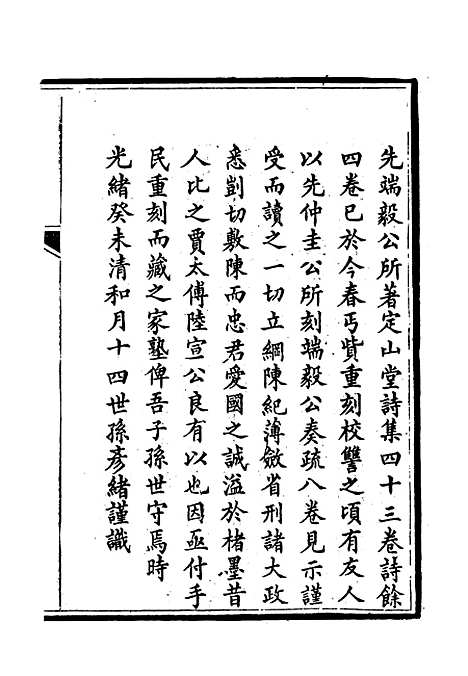 先端毅公所著定山堂詩集四十三卷詩餘
四卷已於今春丐貲重刻校讐之頃有友人
以先仲圭公所刻端毅公奏疏八卷見示謹
受而讀之一切立綱陳紀薄斂省刑諸大政
悉剴切敷陳而忠君愛國之誠溢於楮墨昔
人比之賈太傅陸宣公良有以也因亟付手
民重刻而藏之家塾俾吾子孫世守焉時
光緒癸未清和月十四世孫彥緒謹識